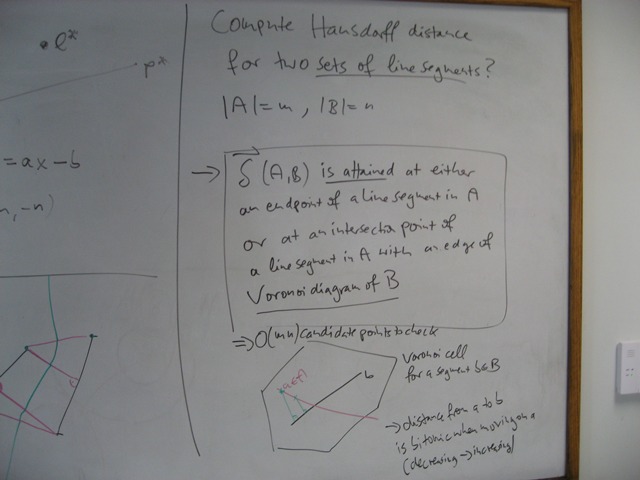 • l*
p*
= ax - b
n, -n)
Compute Hausdorff distance
for two sets of line segments?
|A| = m , |B| = n
→ δ (A,B) is attained at either
an endpoint of a line segment in A
or at an intersection point of
a line segment in A with an edge of
Voronoi diagram of B
⇒ O(mn) candidate points to check
Voronoi cell
for a segment b∈B
a∈A
b
→ distance from a to b
is bitonic when moving on a
(decreasing → increasing)